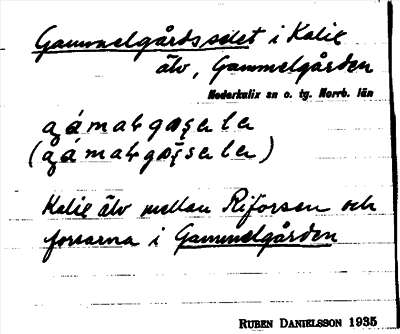 Gammelgårdsselet i Kalix
älv, Gammelgården
Nederkalix sn o. tg. Norrb. län
Kalix älv mellan Riforsen och
forsarna i Gammelgården
RUBEN DANIELSSON 1935